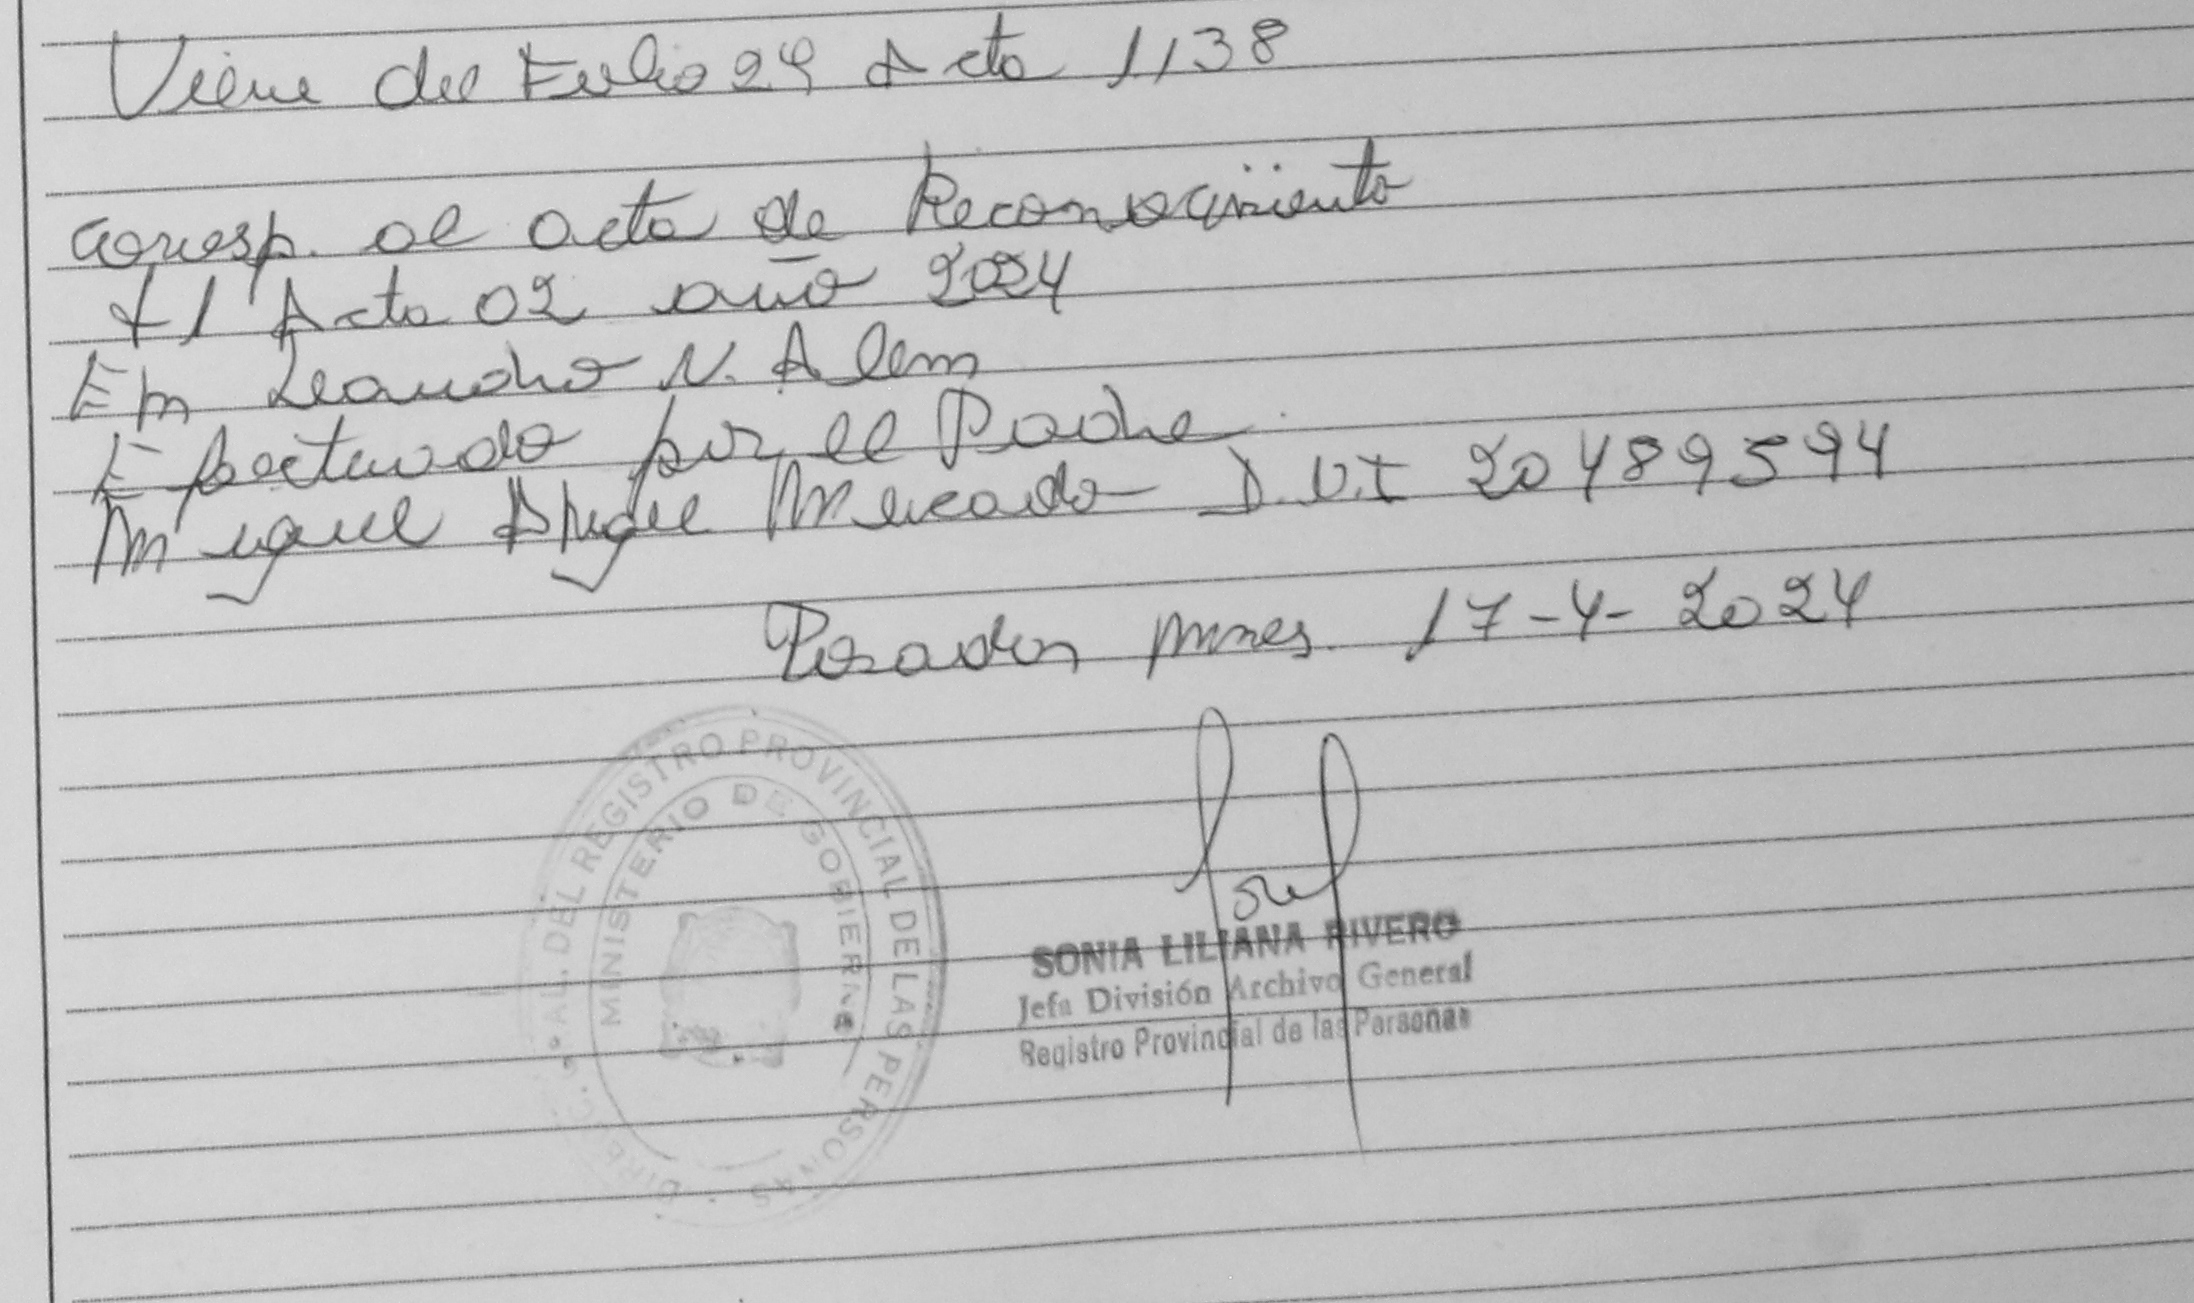 Viene del Folio 24 Acta 1138
Corresp. al acta de Reconocimiento
t 1 Acta 02 año 2024
En Leandro N. Alem
Efectuado por el Padre
Miguel Angel Mercado D.N.I 20489594
Posadas Mnes. 17-4-2024
DIREC. G°AL. DEL REGISTRO PROVINCIAL DE LAS PERSONAS
MINISTERIO DE GOBIERNO
SONIA LILIANA RIVERO
Jefa División Archivo General
Registro Provincial de las Personas